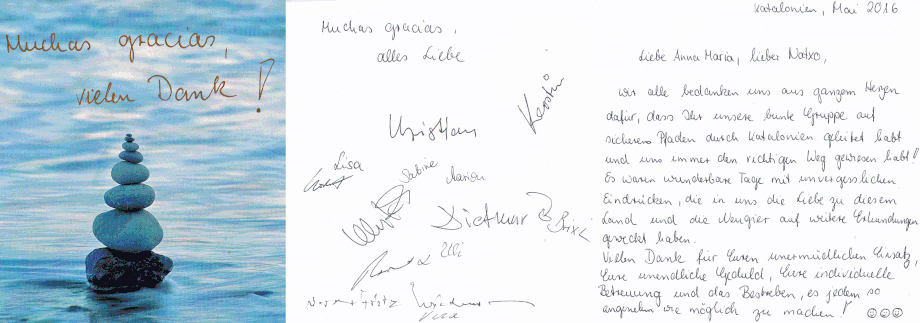 Muchas gracias,
vielen Dank!
Muchas gracias,
alles Liebe
Kerstin
Christian
Lisa
Sabine
Marion
Dietmar
Brixi
Ulli
Vera
Katalonien, Mai 2016
Liebe Anna Maria, lieber Natxo,
wir alle bedanken uns aus ganzem Herzen
dafür, dass Ihr unsere bunte Gruppe auf
sicheren Pfaden durch Katalonien geleitet habt
und uns immer den richtigen Weg gewiesen habt!
Es waren wunderbare Tage mit unvergesslichen
Eindrücken, die in uns die Liebe zu diesem
Land und die Neugier auf weitere Erkundungen
geweckt haben.
Vielen Dank für Euren unermüdlichen Einsatz,
Eure unendliche Geduld, Eure individuelle
Betreuung und das Bestreben, es jedem so
angenehm wie möglich zu machen! ☺☺☺